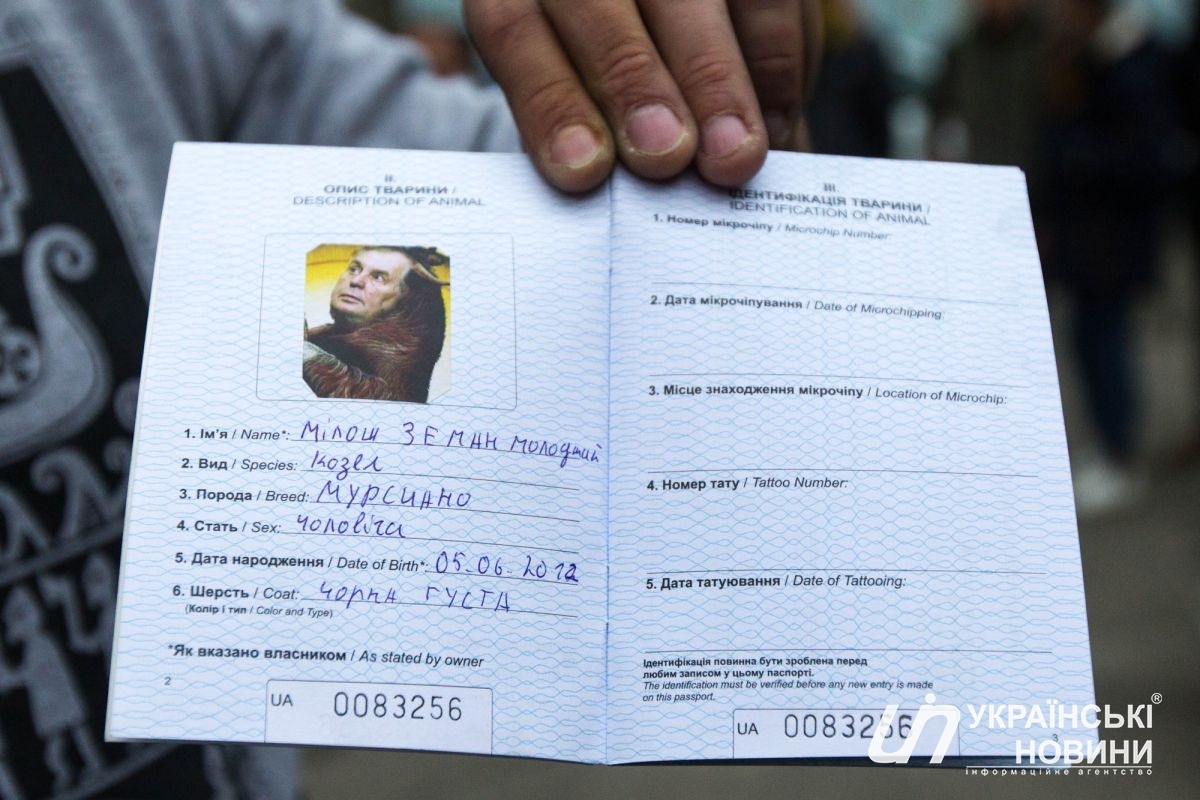 II.
ОПИС ТВАРИНИ /
DESCRIPTION OF ANIMAL
1. Ім'я / Name*: Мілош Земан молодший
2. Вид / Species: Козел
3. Порода / Breed: Мурсиано
4. Стать / Sex: чоловіча
5. Дата народження / Date of Birth*: 05.06.2012
6. Шерсть / Coat: чорна густа
(Колір і тип / Color and Type)
*Як вказано власником / As stated by owner
2
UA 0083256
III.
ІДЕНТИФІКАЦІЯ ТВАРИНИ /
IDENTIFICATION OF ANIMAL
1. Номер мікрочіпу / Microchip Number:
2. Дата мікрочіпування / Date of Microchipping:
3. Місце знаходження мікрочіпу / Location of Microchip:
4. Номер тату / Tattoo Number:
5. Дата татуювання / Date of Tattooing:
Ідентифікація повинна бути зроблена перед
любим записом у цьому паспорті.
The identification must be verified before any new entry is made
on this passport.
UA 0083256
3
УКРАЇНСЬКІ®
НОВИНИ
інформаційне агентство